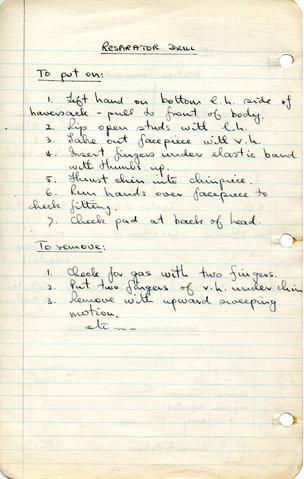 RESPIRATOR DRILL
To put on:
1. Left hand on bottom l.h. side of
haversack - pull to front of body.
2. Rip open studs with l.h.
3. Take out facepiece with r.h.
4. Insert fingers under elastic band
with thumbs up.
5. Thrust chin into chinpiece.
6. Run hands over facepiece to
check fitting.
7. Check pad at back of head.
To remove:
1. Check for gas with two fingers.
2. Put two fingers of r.h. under chin
3. Remove with upward sweeping
motion.
etc